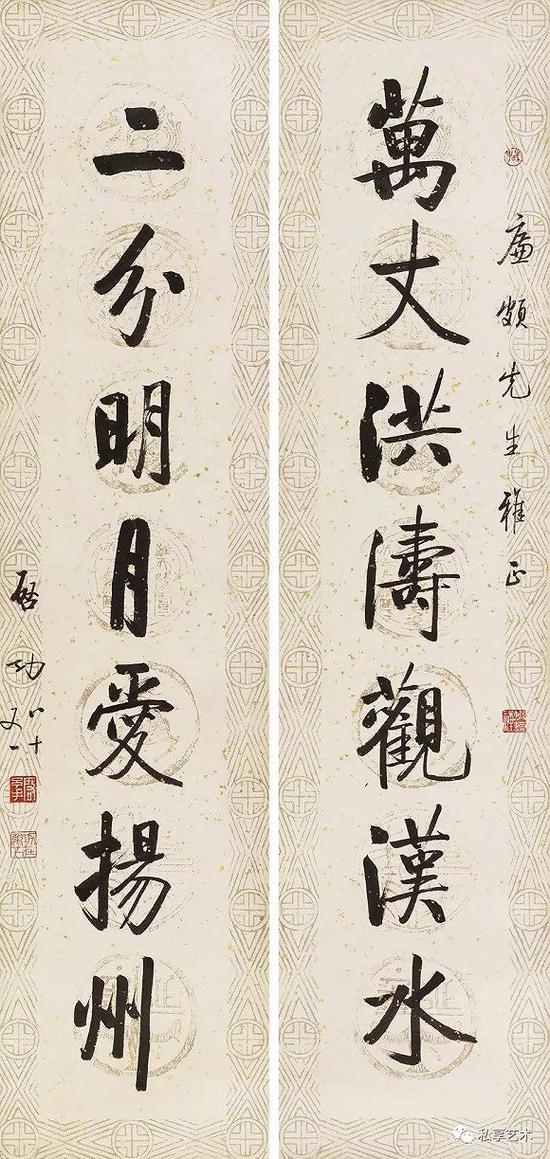 廉頗先生雅正
萬丈洪濤觀漢水
二分明月愛揚州
啓功
八十又一
私享艺术